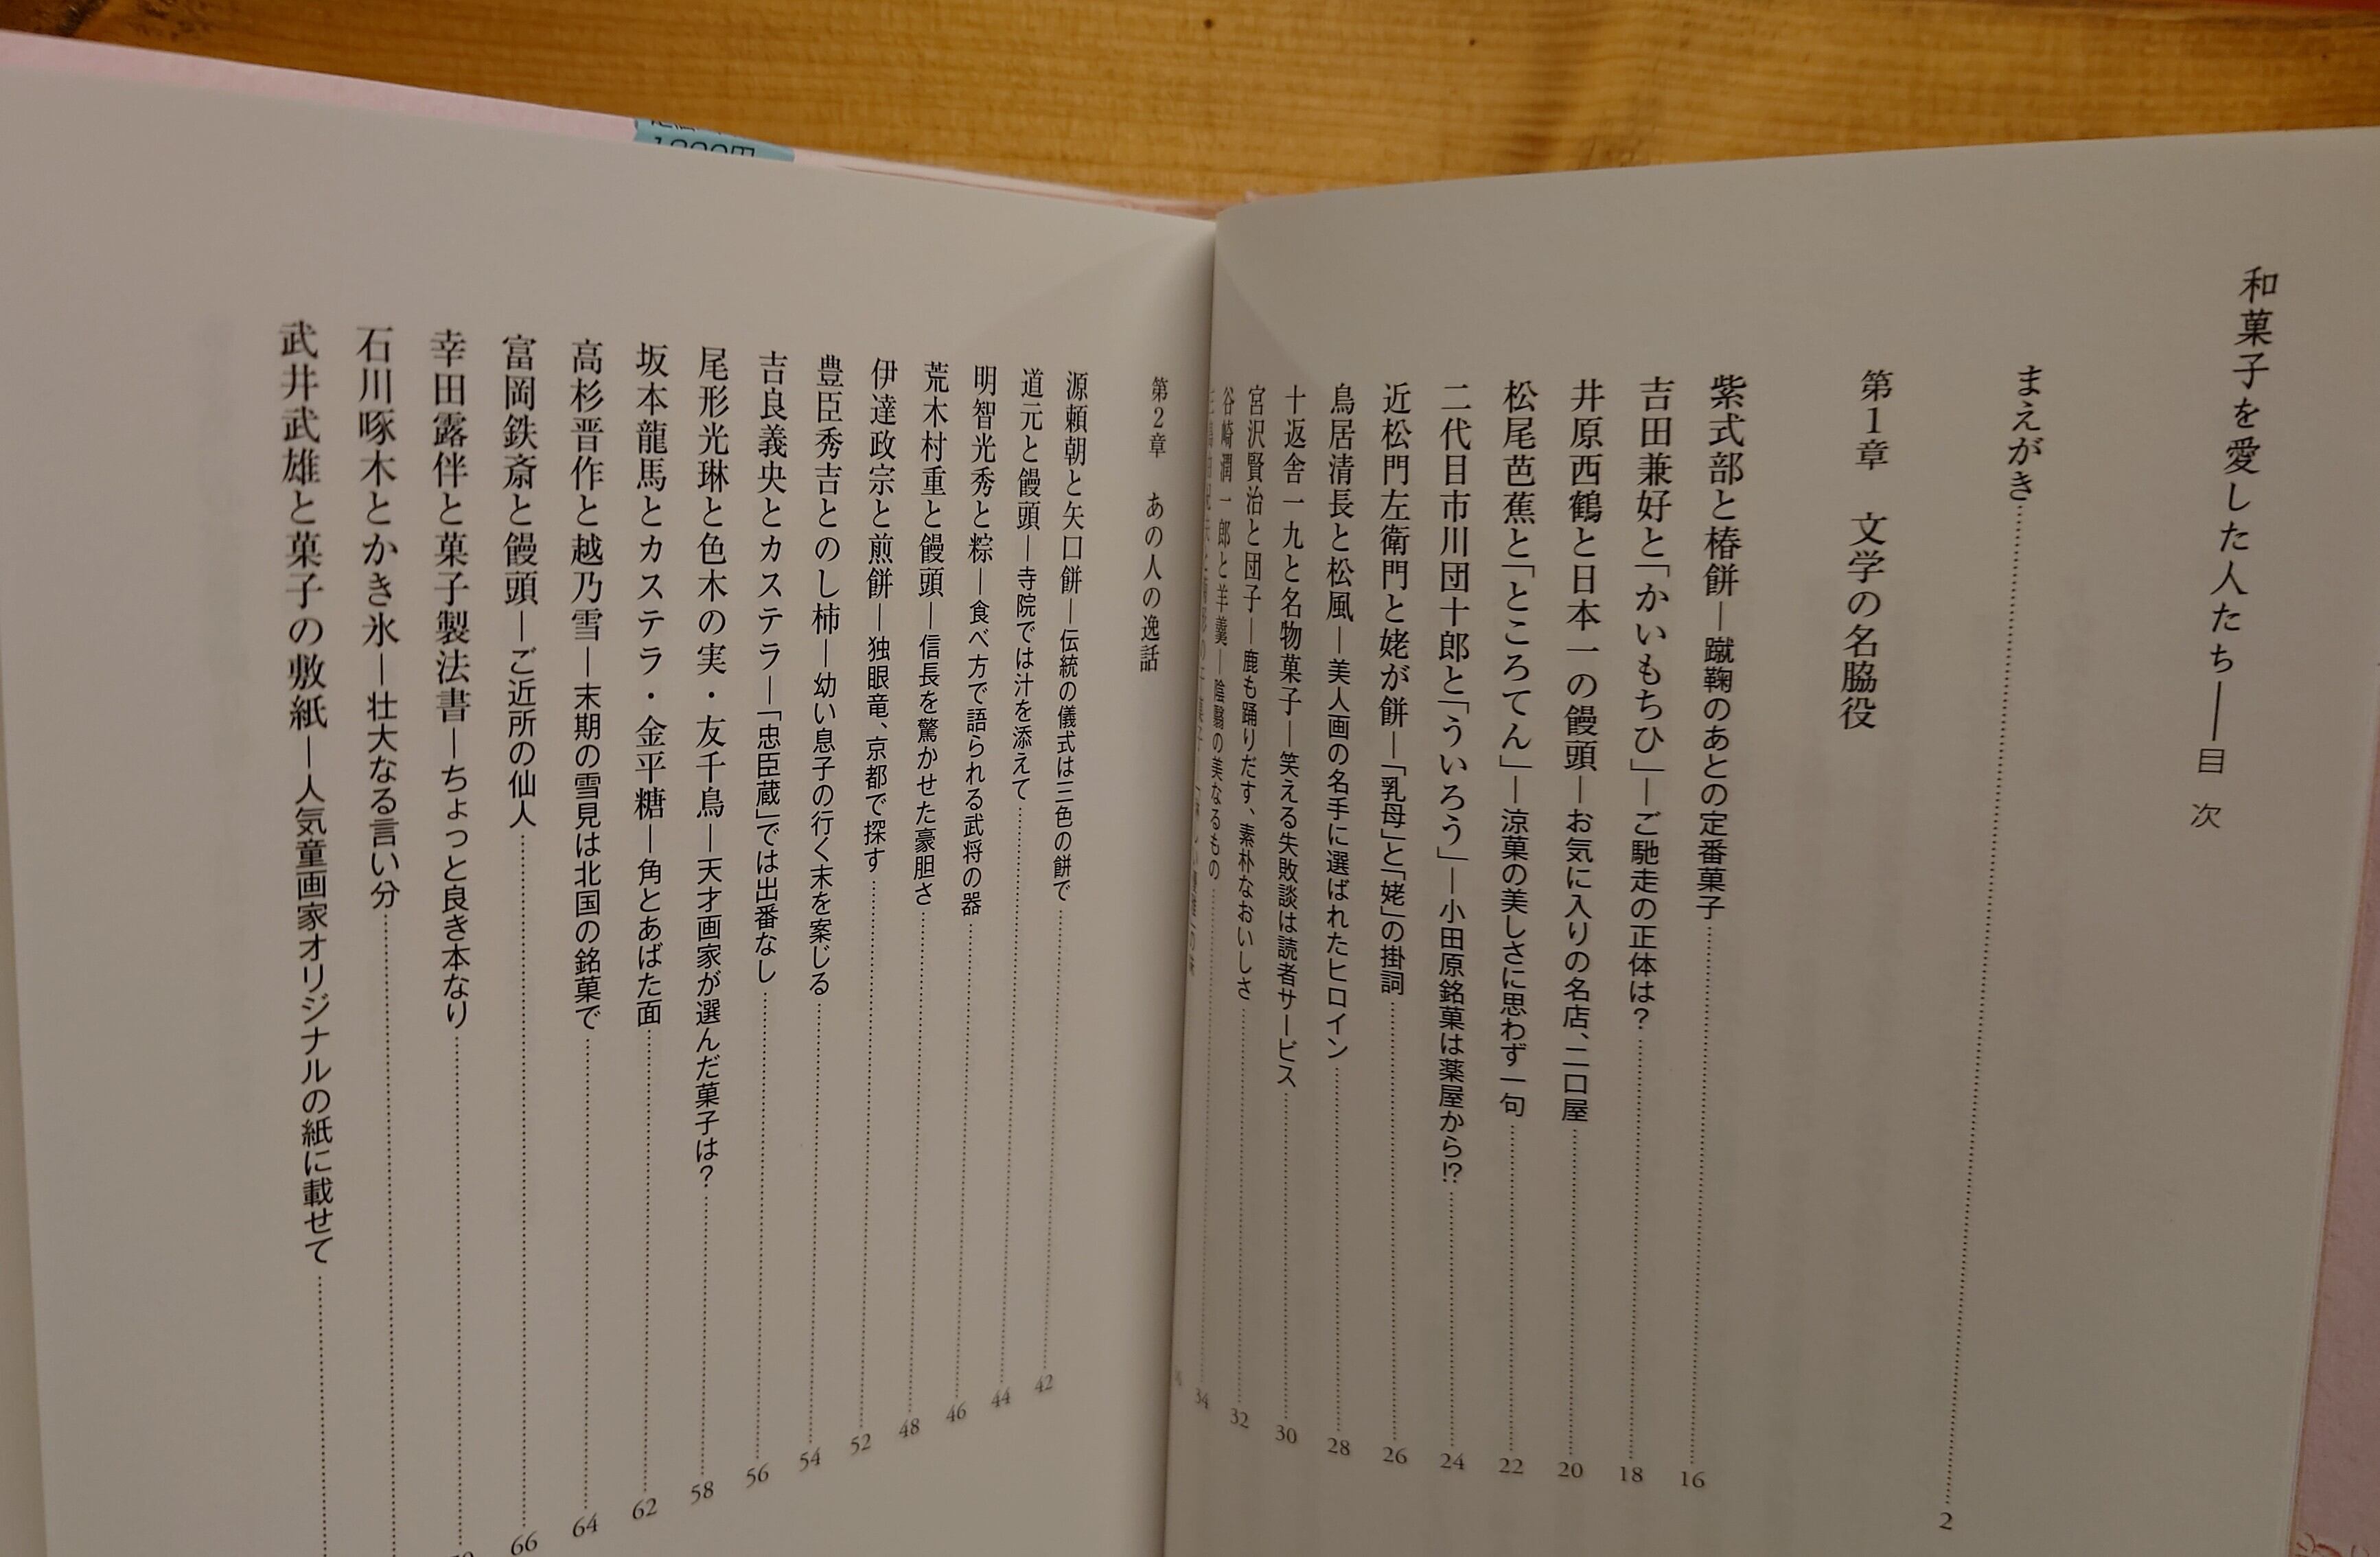 和菓子を愛した人たち――目 次
まえがき……2
第1章 文学の名脇役
紫式部と椿餅―蹴鞠のあとの定番菓子……16
吉田兼好と「かいもちひ」―ご馳走の正体は？……18
井原西鶴と日本一の饅頭―お気に入りの名店、二口屋……20
松尾芭蕉と「ところてん」―涼菓の美しさに思わず一句……22
二代目市川団十郎と「ういろう」―小田原銘菓は薬屋から!?……24
近松門左衛門と姥が餅―「乳母」と「姥」の掛詞……26
鳥居清長と松風―美人画の名手に選ばれたヒロイン……28
十返舎一九と名物菓子―笑える失敗談は読者サービス……30
宮沢賢治と団子―鹿も踊りだす、素朴なおいしさ……32
谷崎潤一郎と羊羹―陰翳の美なるもの……34
第2章 あの人の逸話
源頼朝と矢口餅―伝統の儀式は三色の餅で……42
道元と饅頭―寺院では汁を添えて……44
明智光秀と粽―食べ方で語られる武将の器……46
荒木村重と饅頭―信長を驚かせた豪胆さ……48
伊達政宗と煎餅―独眼竜、京都で探す……52
豊臣秀吉とのし柿―幼い息子の行く末を案じる……54
吉良義央とカステラ―「忠臣蔵」では出番なし……56
尾形光琳と色木の実・友千鳥―天才画家が選んだ菓子は？……58
坂本龍馬とカステラ・金平糖―角とあばた面……62
高杉晋作と越乃雪―末期の雪見は北国の銘菓で……64
富岡鉄斎と饅頭―ご近所の仙人……66
幸田露伴と菓子製法書―ちょっと良き本なり……
石川啄木とかき氷―壮大なる言い分……
武井武雄と菓子の敷紙―人気童画家オリジナルの紙に載せて……